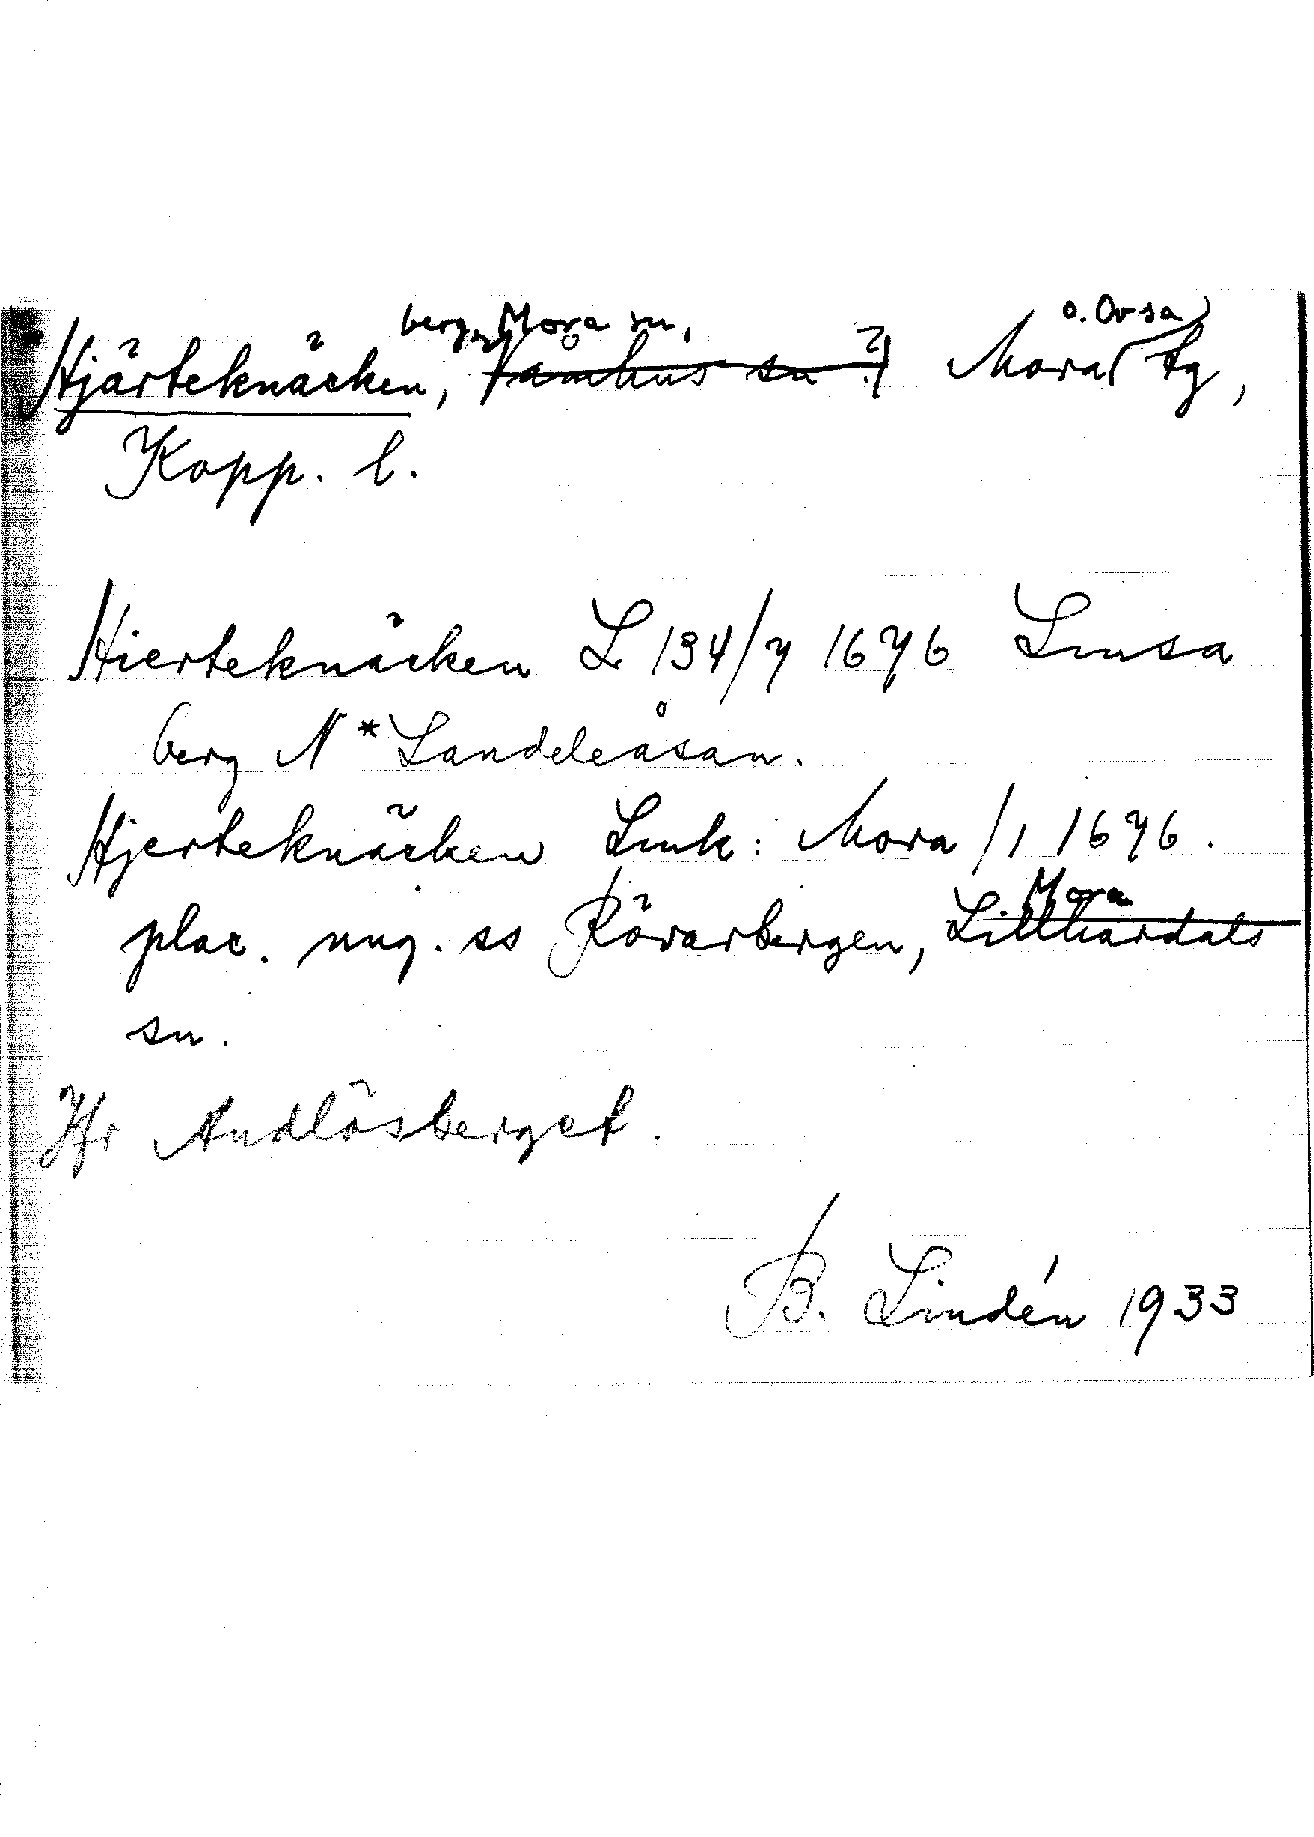 berg, Mora sn, o. Orsa
Hjärteknäcken, Våmhus sn ?) Mora tg,
Kopp. l.
Hierteknäcken L 134/7 1676 Lmsa
berg N * Landeleåsan.
Hjerteknäcken Lmk: Mora /1 1676.
Mora
plac. ung. ss Rövarbergen, Lillhärdals
sn.
Jfr Andlösberget.
B. Lindén 1933